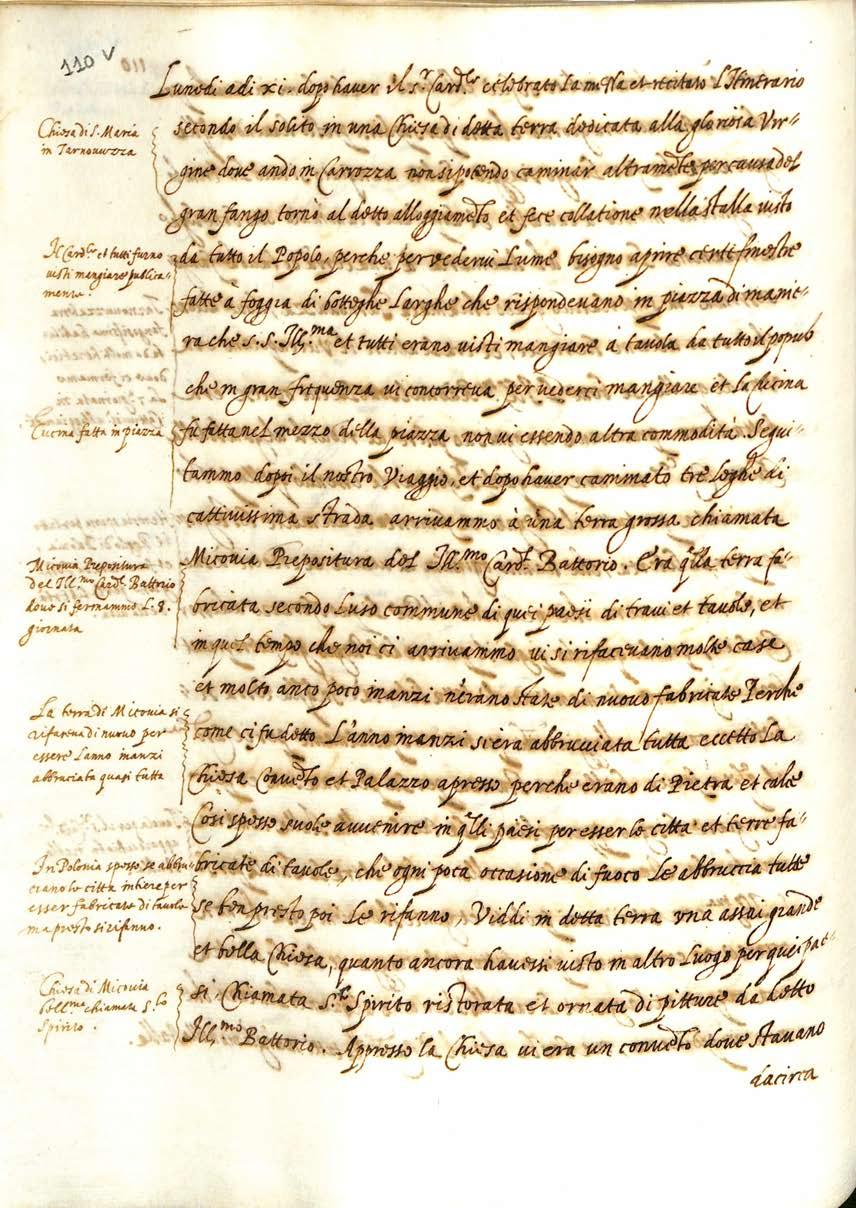 110 v
Lunedi adi xi. dopo haver il s.r Card.le celebrato la messa et recitato l'Itinerario
Chiesa di S. Maria
in Tarnouuzza
secondo il solito in una Chiesa di detta terra dedicata alla gloriosa Ver-
gine dove andò in Carrozza non si potendo caminar altramẽte per causa del
gran fango tornò al detto alloggiamẽto et fece collatione nella stalla visto
Il Card.le et tutti furno
visti mangiare publica-
mente.
da tutto il Popolo, perche per vederui Lume bisognò aprire certe finestre
fatte à foggia di botteghe Larghe che rispondevano in piazza di manie-
ra che S. S. Ill.ma et tutti erano visti mangiare à tavola da tutto il popolo
che in gran frequenza vi concorreva per vederci mangiare et la cucina
Cucina fatta in piazza
fù fatta nel mezzo della piazza non vi essendo altra commodità. Segui-
tammo dopoi il nostro Viaggio, et dopo haver caminato tre leghe di
cattivissima strada arrivammo à una terra grossa chiamata
Micovia Prepositura
del Ill.mo Card.l Battorio
dove si fermammo L. 8.
giornata
Micovia Prepositura del Ill.mo Card.l Battorio. Era q̃lla terra fa-
bricata secondo L'uso commune di quei paesi di travi et tavole, et
in quel tempo che noi ci arrivammo vi si rifacevano molte case
et molto anco poco inanzi n'erano state di nuovo fabricate Perche
La terra di Micovia si
rifaceva di nuovo per
essere l'anno inanzi
abbruciata quasi tutta
come ci fu detto L'anno inanzi si era abbrucciata tutta eccetto La
Chiesa Convẽto et Palazzo apresso perche erano di Pietra et calce
Cosi spesso suole avvenire in q̃lli paesi per esser le città et terre fa-
In Polonia spesso se abbru-
ciano le città intiere per
esser fabricate di tavole
ma presto si rifanno.
bricate di tavole, che ogni poca occasione di fuoco le abbruccia tutte
se ben presto poi le rifanno, Viddi in detta terra una assai grande
et bella Chiesa, quanto ancora havessi visto in altro Luogo per quei pae-
Chiesa di Micovia
bell.ma chiamata S.to
Spirito.
si, Chiamata S.to Spirito ristorata et ornata di pitture da detto
Ill.mo Battorio. Appresso la Chiesa vi era un convẽto dove stavano
da circa